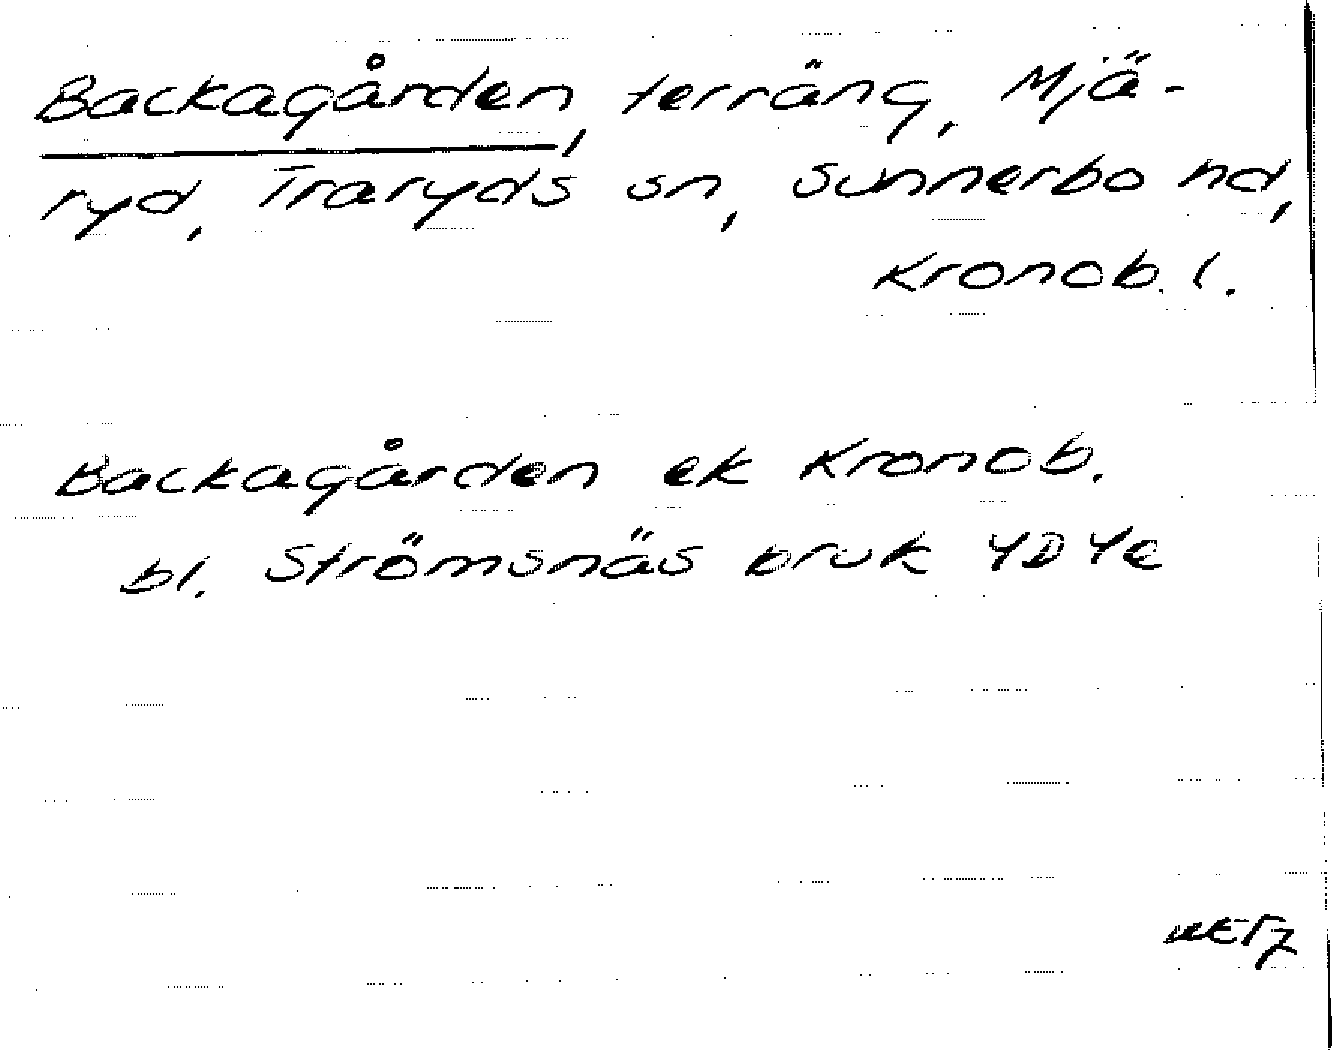 Backagården, terräng, Mjä-
ryd, Traryds sn, Sunnerbo hd,
Kronob. l.
Backagården ek Kronob.
bl. Strömsnäs bruk 4D4e